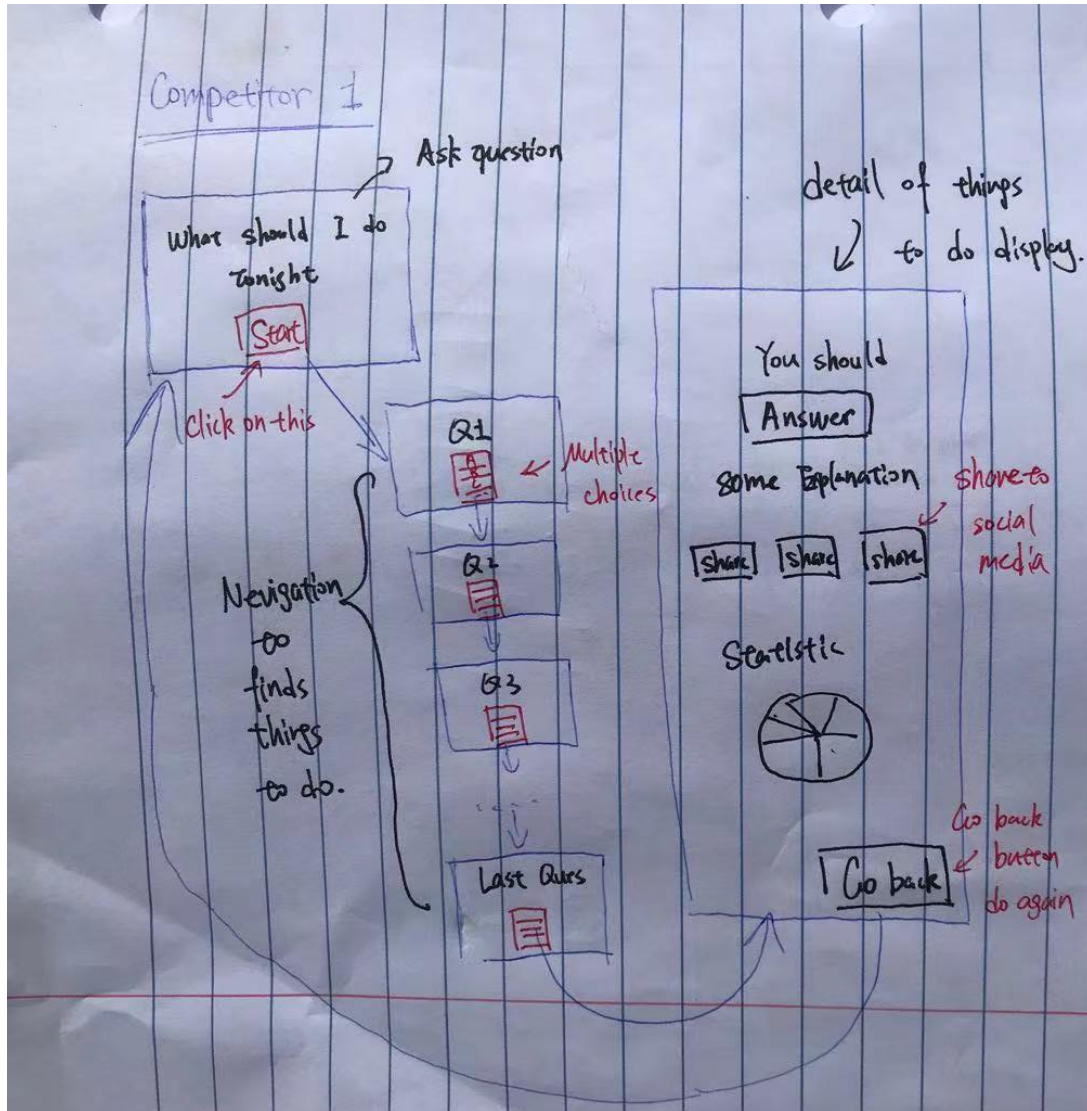 Competitor 1
Ask question
What should I do
tonight
Start
Click on this
Q1
A
B
C
Multiple
choices
Q2
Q3
.....
Last Ques
Nevigation
to
finds
things
to do.
detail of things
to do display.
You should
Answer
some Explanation
share to
social
media
share share share
Statistic
Go back
Go back
button
do again